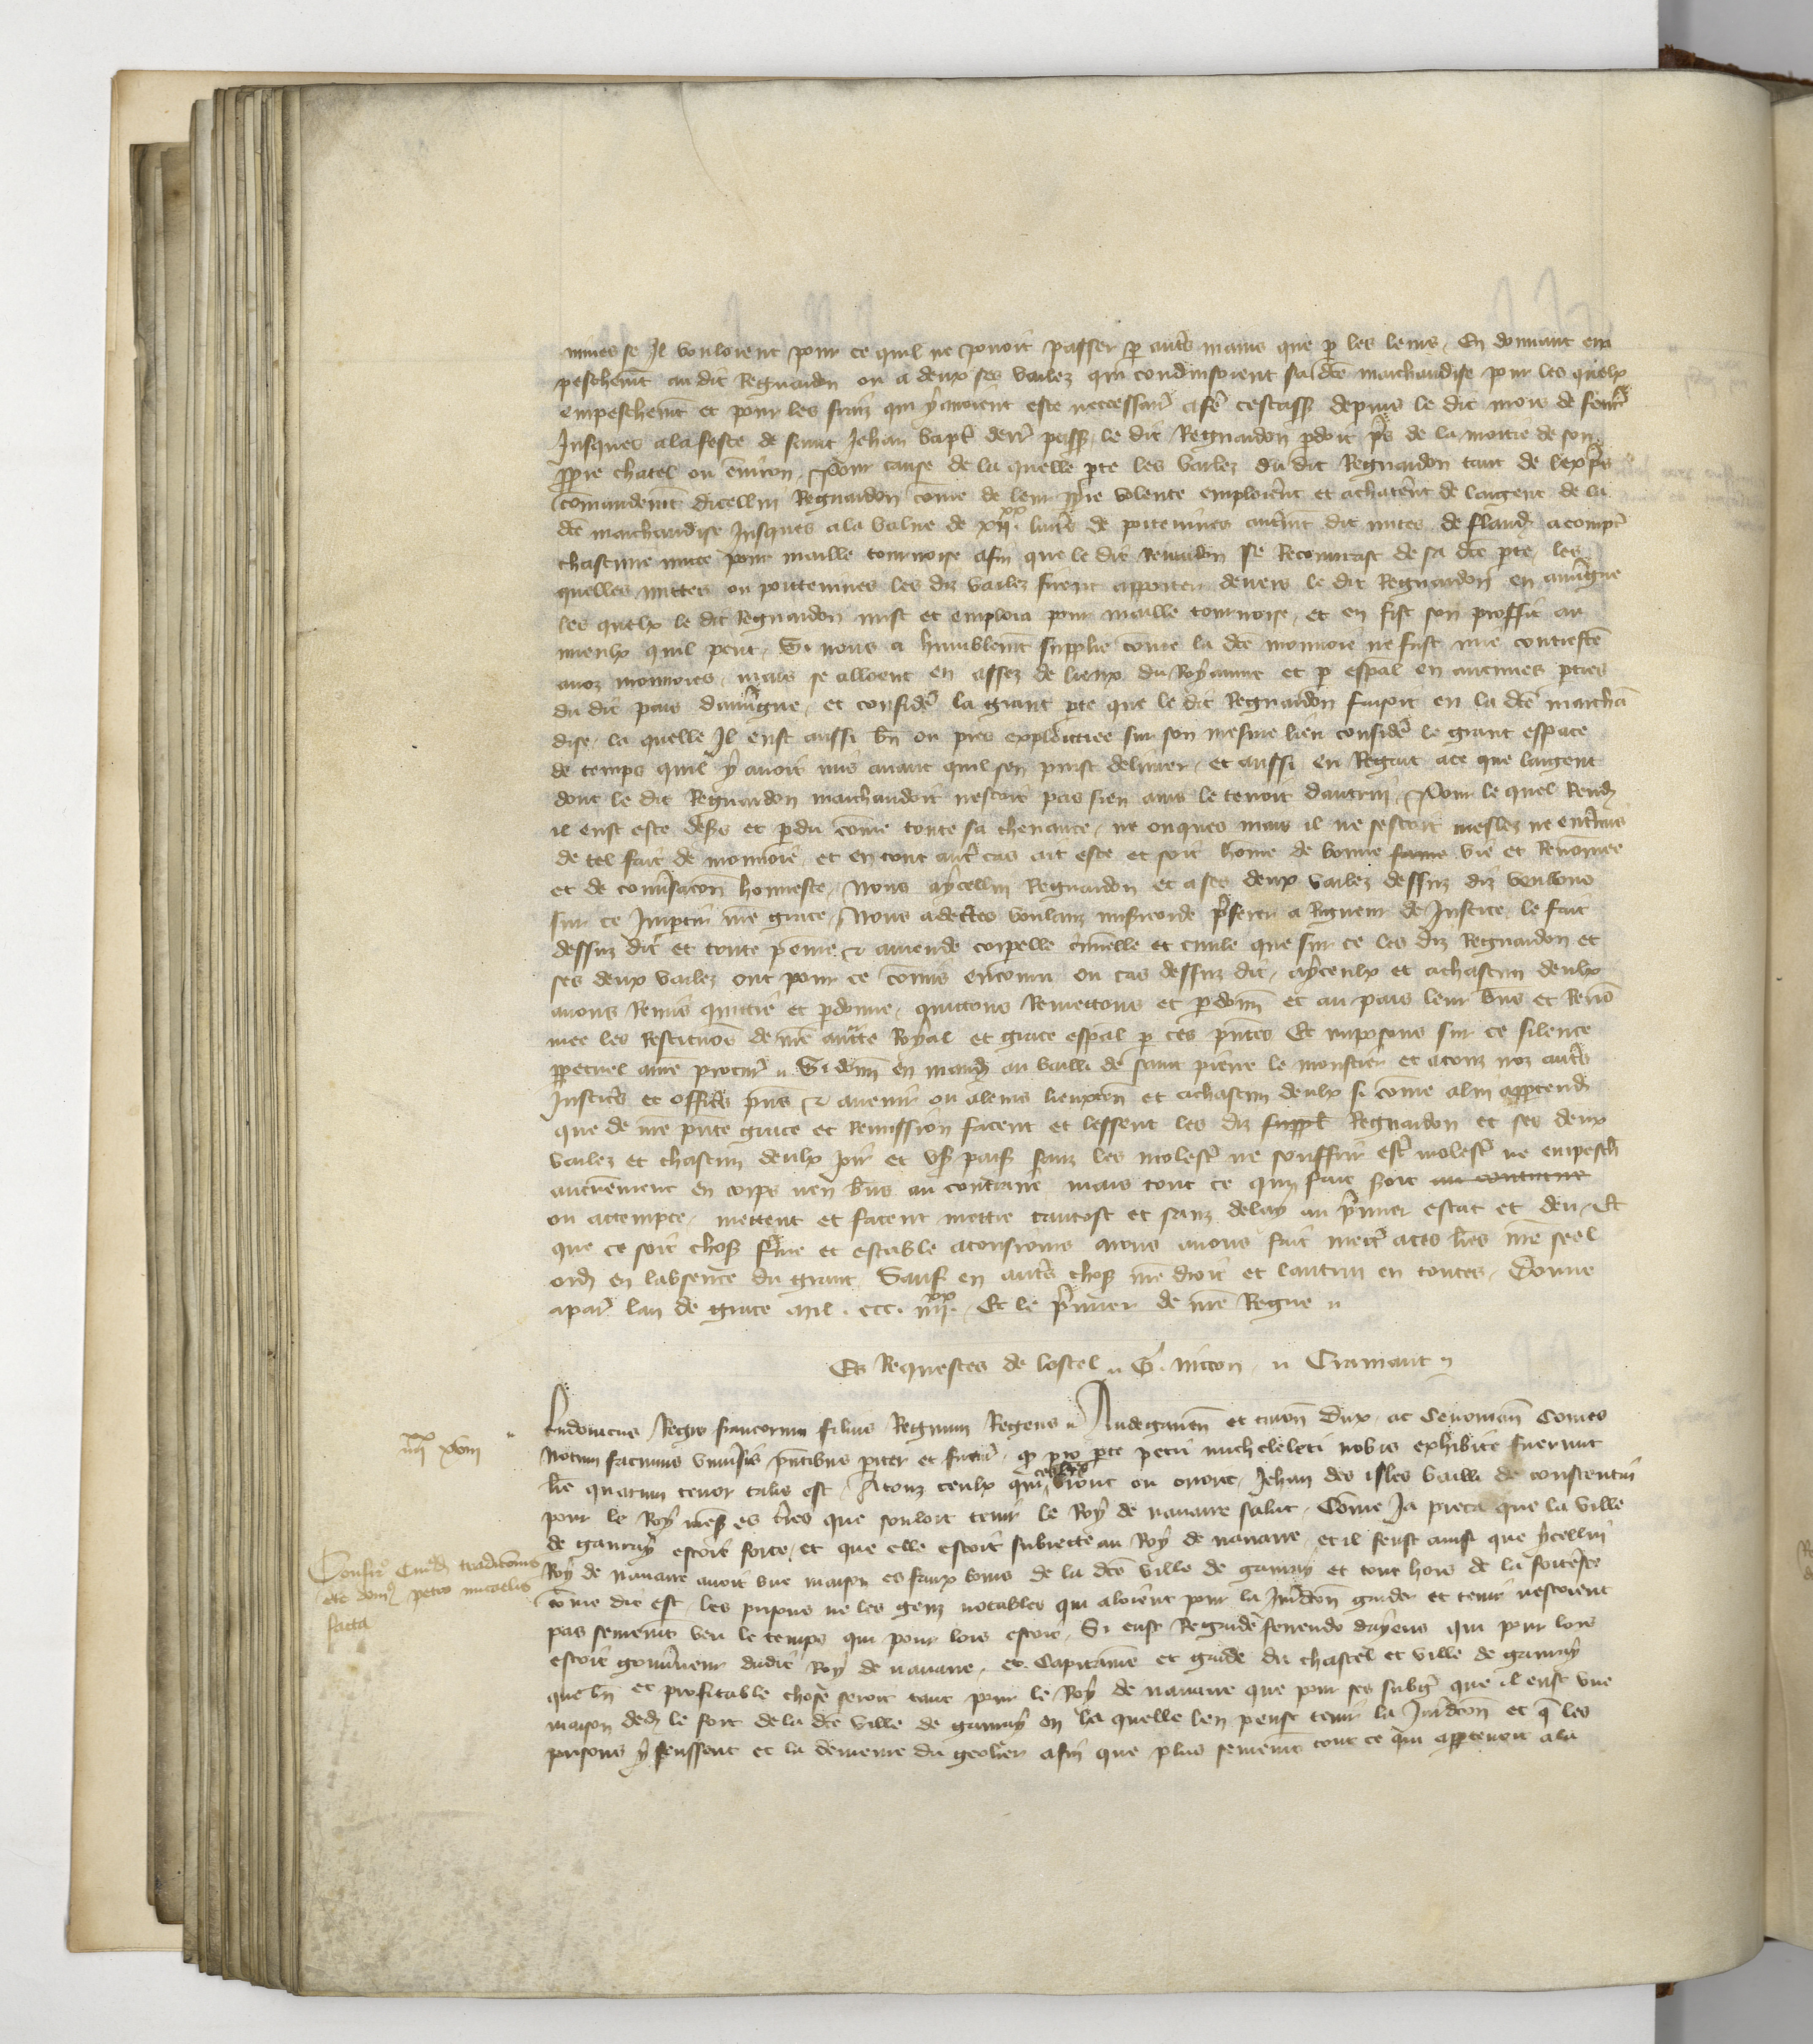 mues se Il vouloient pour ce quil ne pouoit passer p autres mains que p les leurs. En donnant em
peschemt au dit Regnaudon ou a deux ses varlez qui conduisoient sa dce marchandise pour les quelx
empeschemt et pour les fraiz qui y auoient este neccessair a fe cestass depuis le dit mois de feur
Jusques a la feste de saint Jehan bapt derr pass le dit Regnaudon pdoit ps de la moitie de son
ppre chatel ou enuiron. Pour cause de la quelle pte les varlez du dit Regnaudon tant de lexps
comandemt dicellui Regnaudon come de leur ppre volente emploierent et achaterent de largent de la
dce marchandise Jusques a la value de xii xx liures de poitevines autremt dit mites de fland a compt
chascune mite pour maille tournoise afin que le dit Renaudon se Recourast de sa dce pte les
quelles mittes ou poitevines les diz varlez furent apporter deuers le dit Regnaudon en auuergne
les quelx le dit Regnaudon mist et emploia pour maille tournoise, et en fist son proffit au
mieulx quil peut. Si nous a humblemt supplie come la dce monnoie ne fust mie contrefte
a noz monnoies, mais se alloient en assez de lieux du Royaume et p espal en aucunes pties
du dit pais dauuergne, et consider la grant pte que le dit Regnaudon faisoit en la dce marchan
dise, la quelle Il eust aussi bn ou pres exploictiee sur son mesme lieu consider le grant espace
de temps quil y auoit mis auant quil sen peust deliurer, et aussi en Regart a ce que largent
dont le dit Regnaudon marchandoit nestoit pas sien ains le tenoit dautrui. Pour le quel Rend
il eust este desers et pdu come toute sa cheuance, ne onques mais il ne sestoit meslez ne entremis
de tel fait de monnoie et en tout autre cas ait este et soit home de bonne fame vie et Renomee
et de conuersacon honneste, Nous a ycellui Regnaudon et a ses deux varlez dessuz diz veulliens
sur ce Impartir nre grace, Nous adecertes voulanz misericorde preferer a Rigueur de Justice le fait
dessuz dit et toute peine & amende corpelle criminelle et ciuile que sur ce les diz Regnaudon et
ses deux varlez ont pour ce comis encouru ou cas dessuz dit, a yceulx et a chascun deulx
auons Remis quittie et pdonne, quittons Remettons et pdonn et au pais leur bns et Reno
mee les Restituons de nre auctte Royal et grace espal p ces pntes Et imposons sur ce silence
ppetuel a nre procur. Si donn en mand au bailli de saint pierre le moustier et a touz noz autrs
Justicrs et officrs pns & auenir ou a leurs lieuxten et a chascun deulx si come a lui apptendr
que de nre pnte grace et Remission facent et lessent les diz suppl Regnaudon et ses deux
varlez et chascun deulx joir et vser paisi sanz les molester ne souffrir estre molester ne empesch
autrement en corps nen bns au contraire mais tout ce qui fait soit au contraire
ou attempte, mettent et facent mettre tantost et sanz delay au premier estat et deu. Et
que ce soit chose ferme et estable a tousiours Nous auons fait mettr a ces lres nre seel
ord en labsence du grant. Sauf en autrs choses nre droit et lautrui en toutes. Donne
a par lan de grace mil. ccc. iiii xx. Et le premier de nre Regne
Es Requestes de lostel. G. nicon. Cramaut
Ludouicus Regis francorum filius Regnum Regens. Andegauen et turon Dux, ac Cenoman Comes
iiii xx xviii
Notum facimus vniuersis pntibus pariter et futur, qd pro pte petri micheleleti nobis exhibite fuerunt
lre quarum tenor talis est, A touz ceulx qui ces lres verront ou orront, Jehan des isles bailli de constentin
pour le Roy nres es terres que souloit tenir le Roy de nauarre salut. Come Ja pieca que la ville
de gauray estoit forte et que elle estoit subiecte au Roy de nauarre, et il feust ainsi que ycellui
Roy de nauarre auoit vne maison es faux bours de la dce ville de gauray et tout hors de la forteresce
come dit est, les prisons ne les genz notables qui aloient pour la Juridcon garder et tenir nestoient
pas seuremt veu le temps qui pour lors estoit. Si eust Regarde ferrendo dayens qui pour lors
estoit gouuerneur dudit Roy de nauarre. et Capitaine et garde du chastel et ville de gauray
que bn et profitable chose seroit tant pour le Roy de nauarre que pour ses subges que il eust vne
maison ded le fort de la dce ville de gauray en la quelle len peust tenir la Juridcon et q les
prisons y feussent et la demeure du geolier afin que plus seuremt tout ce qui apptenoit a la
Confir Cuiusd tradicionis
etc domus petro micaelis
facta